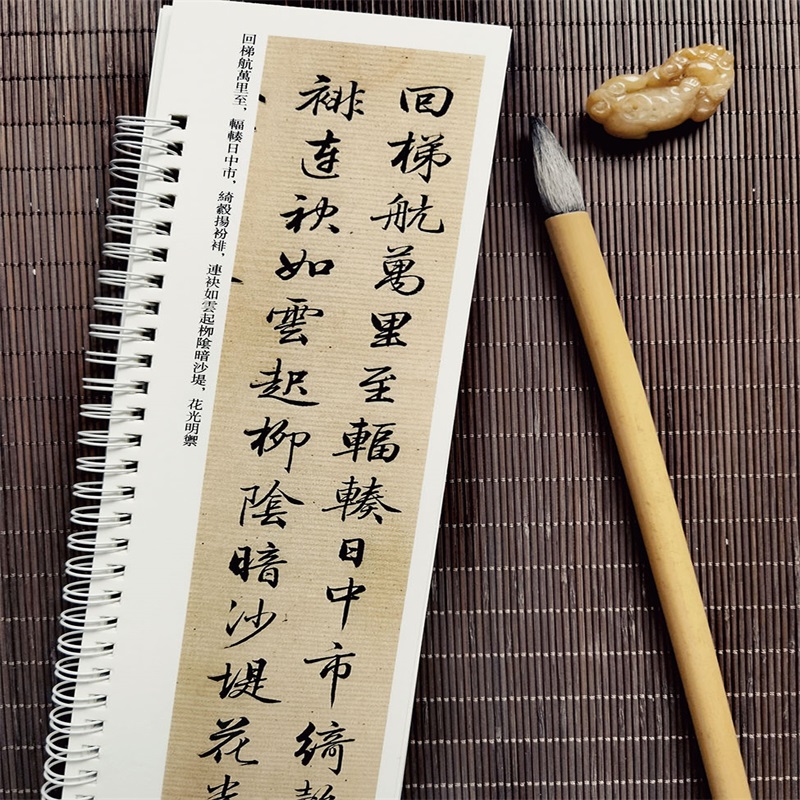 回梯航萬里至輻輳日中市綺縠
裶連袂如雲起柳陰暗沙堤花光
回梯航萬里至、輻輳日中市、綺縠揚衯裶、連袂如雲起柳陰暗沙堤、花光明禦